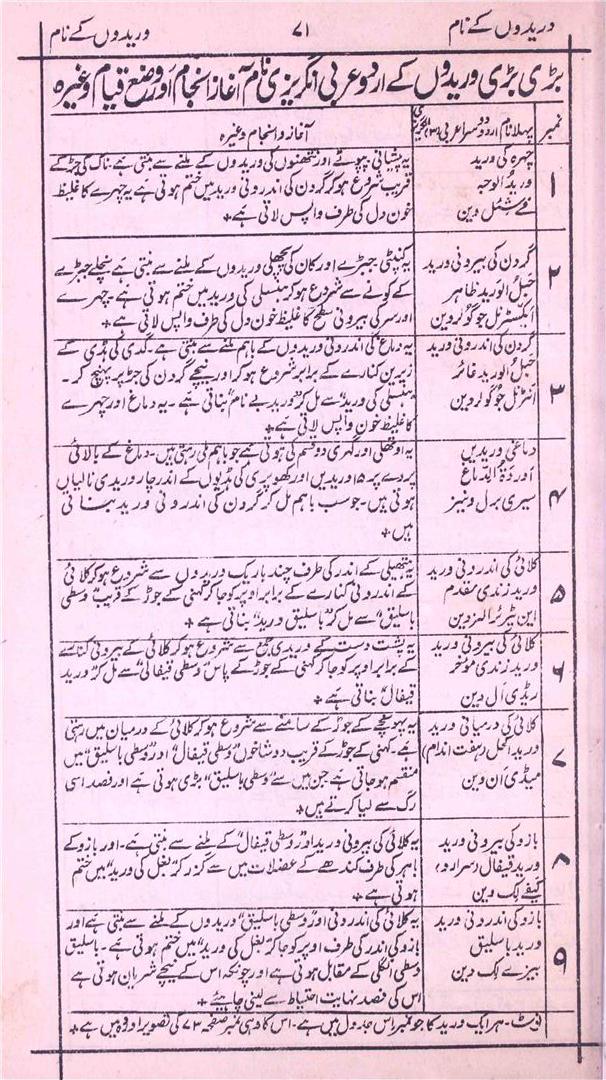 وریدوں کے نام
۷۱
وریدوں کے نام
بڑی بڑی وریدوں کے اردو عربی انگریزی نام آغاز انجام اور وضع قیام وغیرہ
نمبر
پہلا نام اردو دوسرا عربی (۳) انگریزی
آغاز و انجام وغیرہ
۱
چہرہ کی ورید
ورید الوجہ
فے شئل وین
یہ پیشانی پپوٹے اور نتھنوں کی وریدوں کے ملنے سے بنتی ہے ناک کی جڑ کے
قریب شروع ہو کر گردن کی اندرونی ورید میں ختم ہوتی ہے یہ چہرے کا غلیظ
خون دل کی طرف واپس لاتی ہے +
۲
گردن کی بیرونی ورید
حبل الورید ظاہر
ایکسٹرنل جوگولر وین
یہ کنپٹی جبڑے اور کان کی پچھلی وریدوں کے ملنے سے بنتی ہے نچلے جبڑے
کے کونے سے شروع ہو کر ہنسلی کی ورید میں ختم ہوتی ہے۔ چہرے
اور سر کی بیرونی سطح کا غلیظ خون دل کی طرف واپس لاتی ہے +
۳
گردن کی اندرونی ورید
حبل الورید غائر
انٹرنل جوگولر وین
یہ دماغ کی اندرونی وریدوں کے باہم ملنے سے بنتی ہے۔ گدی کی ہڈی کے
زیرین کنارے کے برابر شروع ہو کر اور نیچے گردن کی جڑ پر پہنچ کر۔
ہنسلی کی ورید سے مل کر "ورید بے نام" بناتی ہے۔ یہ دماغ اور چہرے
کا غلیظ خون واپس لاتی ہے +
۴
دماغی وریدیں
اوردۃ الدماغ
سیری برل وینیز
یہ اوتھلی اور گہری دو قسم کی ہوتی ہے جو باہم ملی رہتی ہیں۔ دماغ کے بالائی
پردے پر ۱۵ وریدیں اور کھوپری کی ہڈیوں کے اندر چار وریدی نالیاں
ہوتی ہیں۔ جو سب باہم مل کر گردن کی اندرونی ورید بناتی
ہیں +
۵
کلائی کی اندرونی ورید
ورید زندی مقدم
این ٹیرئر النر وین
یہ ہتھیلی کے اندر کی طرف چند باریک وریدوں سے شروع ہو کر کلائی
کے اندرونی کنارے کے برابر اوپر کو جا کر کہنی کے جوڑ کے قریب "وسطی
باسلیق" سے مل کر "باسلیق ورید" بناتی ہے +
۶
کلائی کی بیرونی ورید
ورید زندی مؤخر
ریڈی ال وین
یہ پشت دست کے وریدی جمع سے شروع ہو کر کلائی کے بیرونی کنارے
کے برابر اوپر کو جا کر کہنی کے جوڑ کے پاس "وسطی قیفالی" سے مل کر "ورید
قیفال" بناتی ہے +
۷
کلائی کی درمیانی ورید
ورید اکحل (ہفت اندام)
میڈی ان وین
یہ پہونچے کے جوڑ کے سامنے سے شروع ہو کر کلائی کے درمیان میں رہتی
ہے کہنی کے جوڑ کے قریب دو شاخوں "وسطی قیفال" اور "وسطی باسلیق" میں
منقسم ہو جاتی ہے جن میں سے "وسطی باسلیق" بڑی ہوتی ہے اور فصد اسی
رگ سے لیا کرتے ہیں +
۸
بازو کی بیرونی ورید
ورید قیفال (سرارو)
کیفے لک وین
یہ کلائی کی بیرونی ورید اور "وسطی قیفال" کے ملنے سے بنتی ہے۔ اور بازو کے
باہر کی طرف کندھے کے عضلات میں سے گزر کر "بغل کی ورید" میں ختم
ہوتی ہے +
۹
بازو کی اندرونی ورید
ورید باسلیق
بیزے لک وین
یہ کلائی کی اندرونی اور "وسطی باسلیق" وریدوں کے ملنے سے بنتی ہے اور
بازو کی اندر کی طرف اوپر کو جا کر "بغل کی ورید" میں ختم ہوتی ہے۔ باسلیق
وسطی انگلی کے مقابل ہوتی ہے اور چونکہ اس کے نیچے شریان ہوتی ہے
اس کی فصد نہایت احتیاط سے لینی چاہیئے +
نوٹ۔ ہر ایک ورید کا جو نمبر اس جدول میں ہے۔ اس کا وہی نمبر صفحہ ۷۳ کی تصویر اوردہ میں ہے +